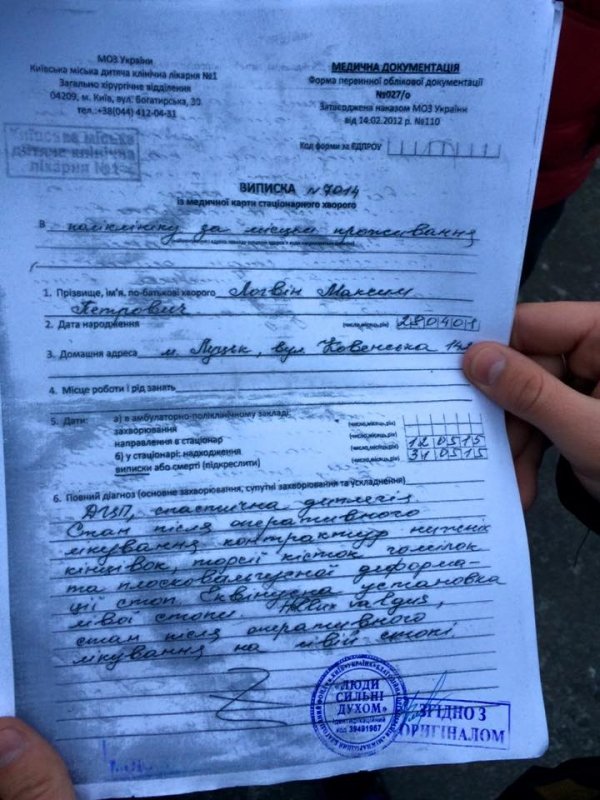 МОЗ України
Київська міська дитяча клінічна лікарня №1
Загально хірургічне відділення
04209, м. Київ, вул. Богатирська, 30
тел.:+38(044) 412-04-31
МЕДИЧНА ДОКУМЕНТАЦІЯ
Форма первинної облікової документації
№027/о
Затверджена наказом МОЗ України
від 14.02.2012 р. №110
Код форми за ЄДПРОУ
Київська міська
дитяча клінічна
лікарня №1
ВИПИСКА №7014
із медичної карти стаціонарного хворого
В поліклініку за місцем проживання
1. Прізвище, ім'я, по-батькові хворого Логвін Максим
Петрович
2. Дата народження (число,місяць,рік) 280401
3. Домашня адреса м. Луцьк, вул. Ковельська
4. Місце роботи і рід занять
5. Дати: а) в амбулаторно-поліклінічному закладі:
захворювання (число,місяць,рік)
направлення в стаціонар (число,місяць,рік) 120515
б) у стаціонарі: надходження (число,місяць,рік) 310515
виписки або смерті (підкреслити) (число,місяць,рік)
6. Повний діагноз (основне захворювання, супутні захворювання та ускладнення)
ДЦП, спастична диплегія.
Стан після оперативного
лікування контрактур нижніх
кінцівок, торсії кісток гомілок
та плосковальгусної деформа-
ції стоп. Еквінусна установка
лівої стопи. Hallux valgus,
стан після оперативного
лікування на лівій стопі.
«ЛЮДИ
СИЛЬНІ
ДУХОМ»
Ідентифікаційний
код 39491967
ЗГІДНО З
ОРИГІНАЛОМ